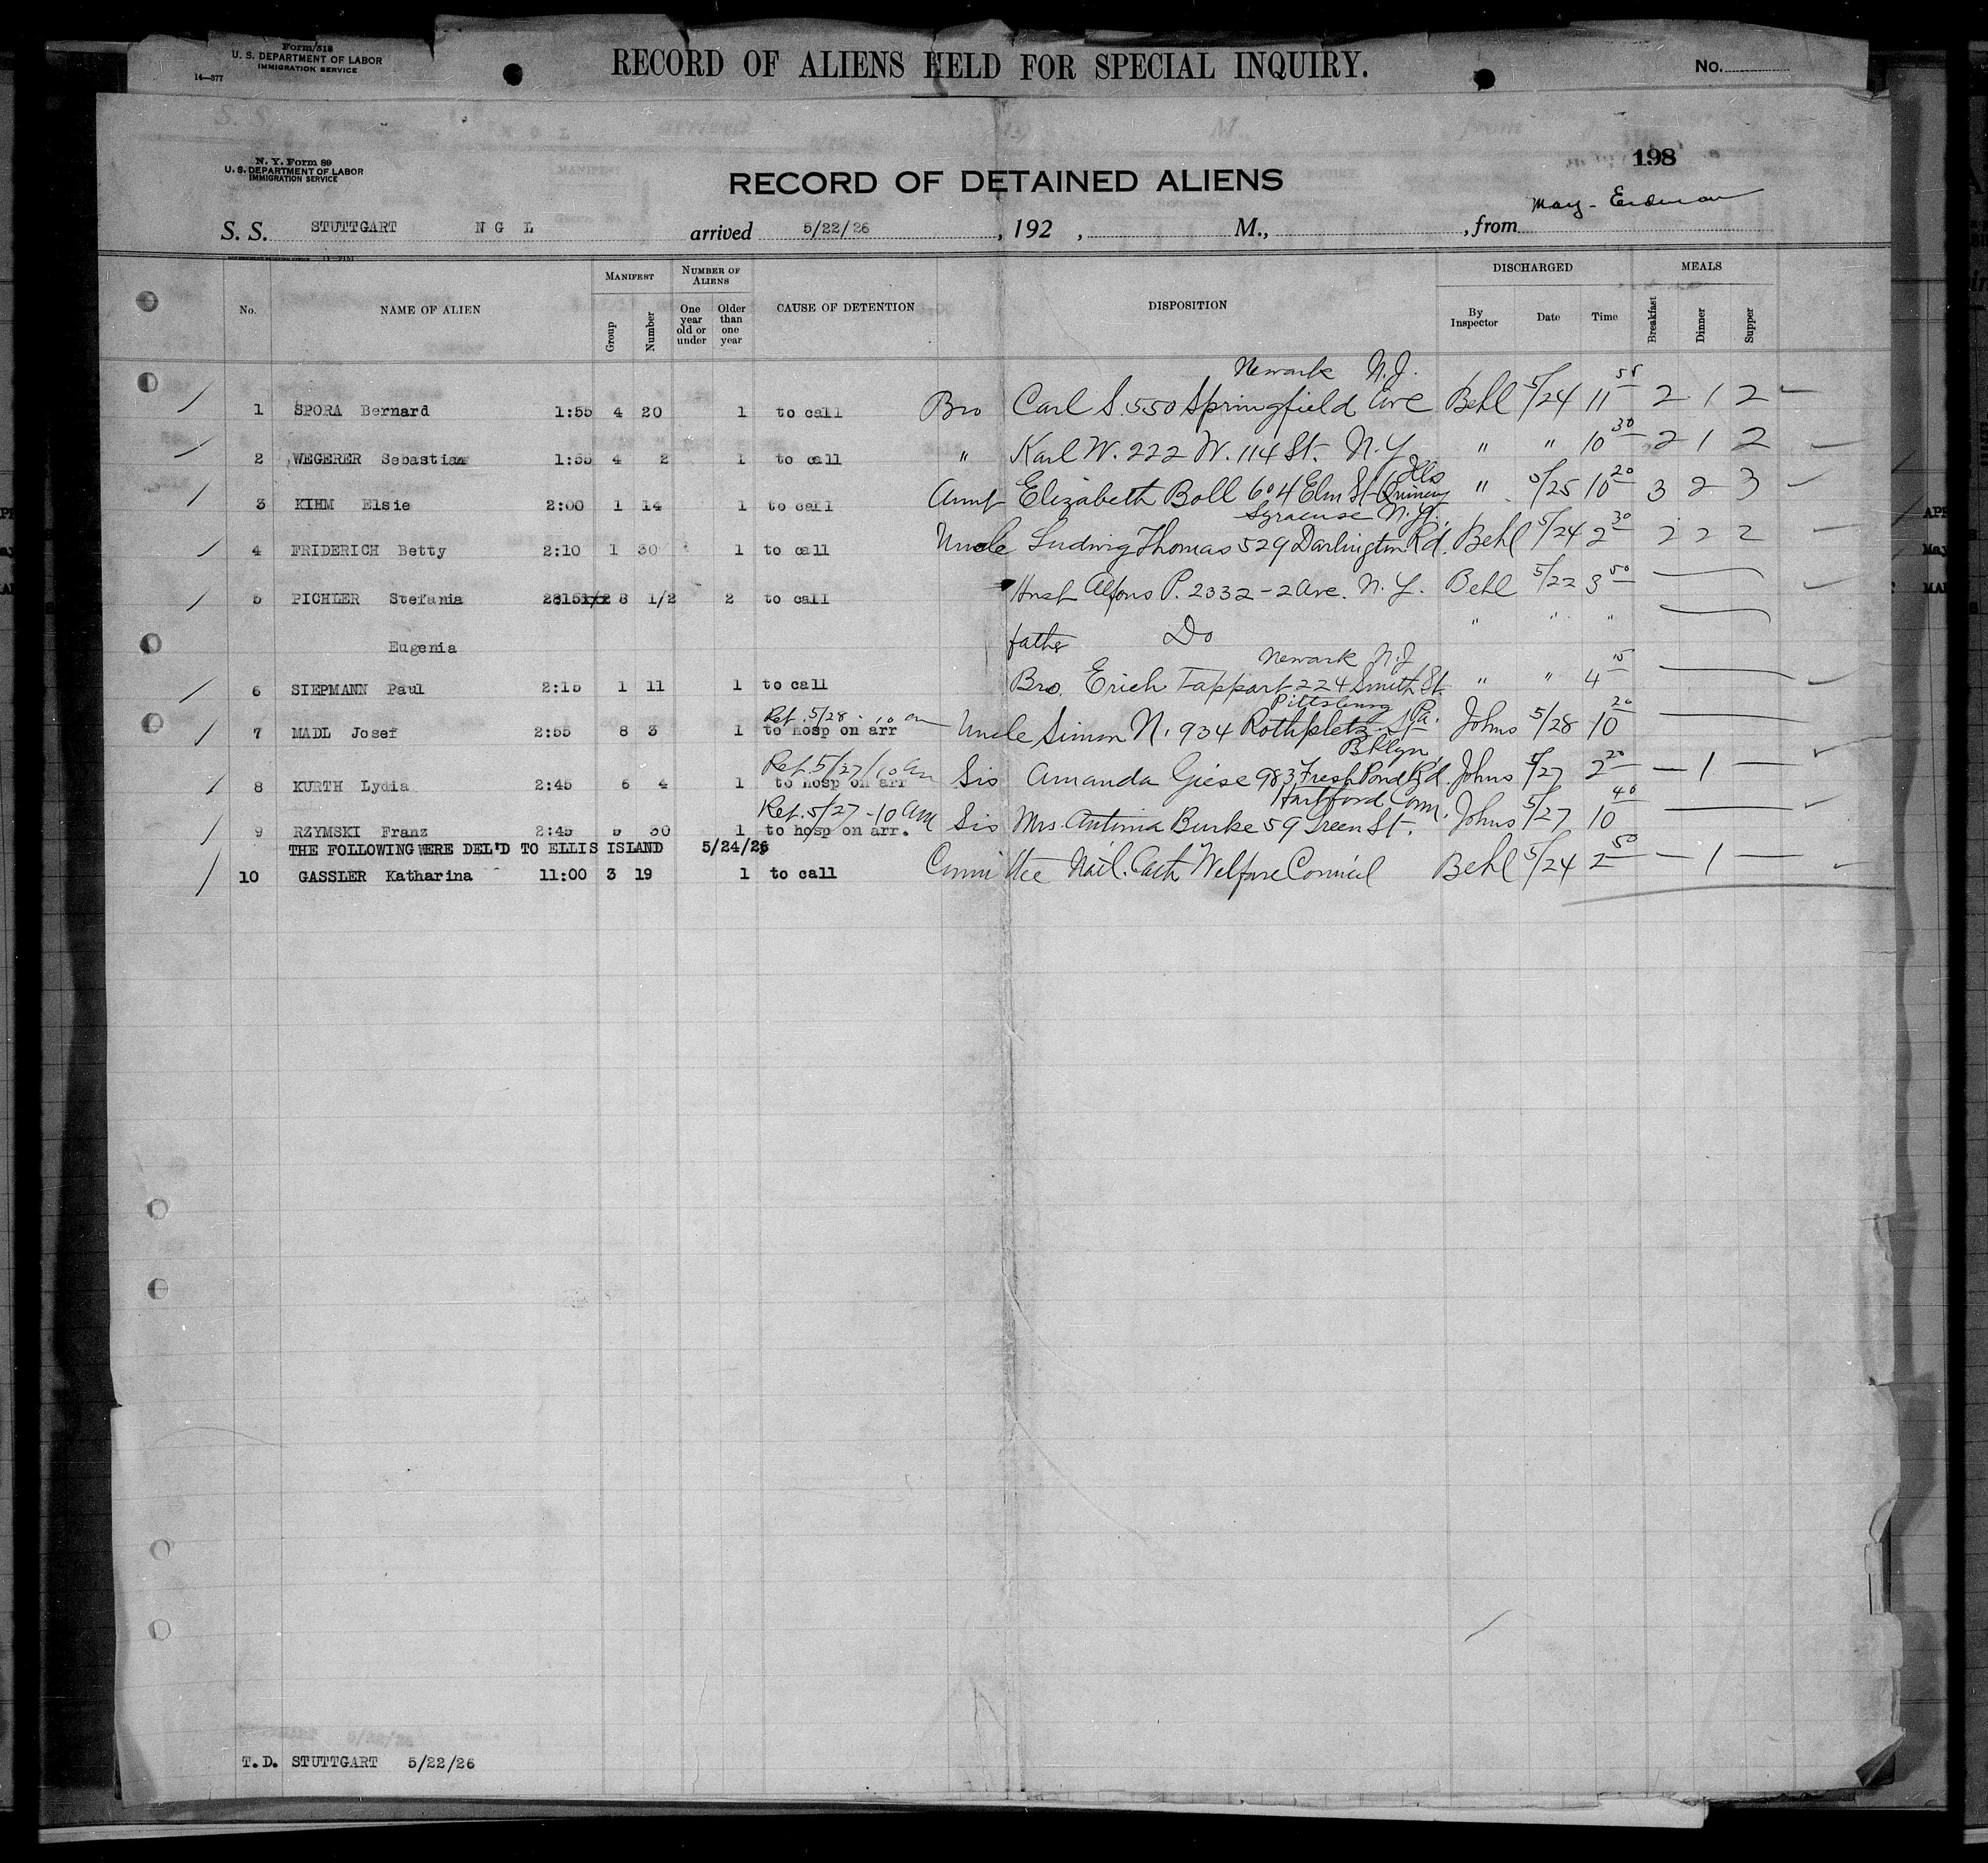 Form 518
U. S. DEPARTMENT OF LABOR
IMMIGRATION SERVICE
14—377
RECORD OF ALIENS HELD FOR SPECIAL INQUIRY.
No.
198
N. Y. Form 89
U. S. DEPARTMENT OF LABOR
IMMIGRATION SERVICE
RECORD OF DETAINED ALIENS
S. S. STUTTGART N G L arrived 5/22/26, 192 , M., , from May - Erdman
No. NAME OF ALIEN MANIFEST Group Number NUMBER OF ALIENS One year old or under Older than one year CAUSE OF DETENTION DISPOSITION DISCHARGED By Inspector Date Time MEALS Breakfast Dinner Supper
Newark N.J.
1 SPORA Bernard 1:55 4 20 1 to call Bro Carl S. 550 Springfield Ave Behl 5/24 11 55 2 1 2
2 WEGERER Sebastian 1:55 4 2 1 to call " Karl W. 222 W. 114 St. N.Y. " " 10 30 2 1 2
3 KIHM Elsie 2:00 1 14 1 to call Aunt Elizabeth Boll 604 Elm St Quincy Ills " 5/25 10 20 3 2 3
Syracuse N.Y.
4 FRIDERICH Betty 2:10 1 30 1 to call Uncle Ludwig Thomas 529 Darlington Rd. Behl 5/24 2 30 2 2 2
5 PICHLER Stefania 8 1/2 2 to call Husb Alfons P. 2332 - 2 Ave. N.Y. Behl 5/22 3 50
Eugenia father Do " " "
Newark N.J
6 SIEPMANN Paul 2:15 1 11 1 to call Bro. Erich Tappart 224 Smith St. " " 4 15
Ret. 5/28 - 10 am Pittsburg Pa.
7 MADL Josef 2:55 8 3 1 to hosp on arr Uncle Simon N. 934 Rothpletz St Johns 5/28 10 20
Ret. 5/27/10 am Bklyn
8 KURTH Lydia 2:45 6 4 1 to hosp on arr Sis Amanda Giese 983 Fresh Pond Rd. Johns 5/27 2 20 — 1 —
Ret. 5/27 - 10 am Hartford Conn.
9 RZYMSKI Franz 2:45 5 30 1 to hosp on arr. Sis Mrs. Antonia Burke 59 Green St. Johns 5/27 10 40
THE FOLLOWING WERE DEL'D TO ELLIS ISLAND 5/24/26
10 GASSLER Katharina 11:00 3 19 1 to call Committee Nat'l. Cath Welfare Council Behl 5/24 2 50 — 1 —
T.D. STUTTGART 5/22/26